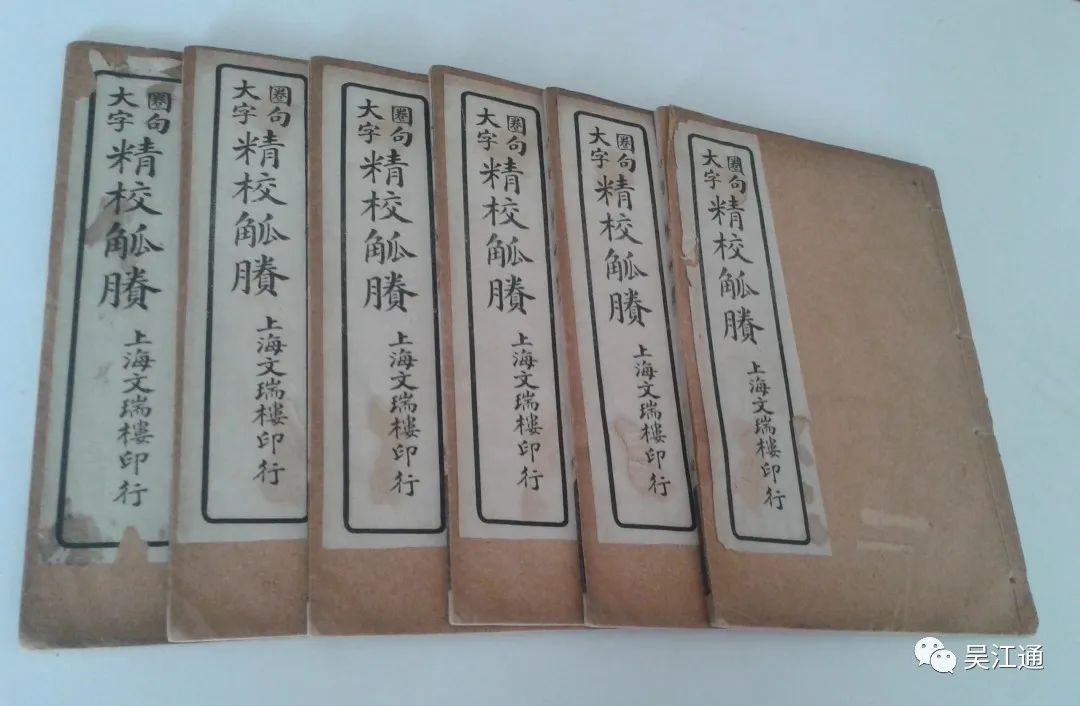 圈句
大字
精校觚賸
上海文瑞樓印行
圈句
大字
精校觚賸
上海文瑞樓印行
圈句
大字
精校觚賸
上海文瑞樓印行
圈句
大字
精校觚賸
上海文瑞樓印行
圈句
大字
精校觚賸
上海文瑞樓印行
圈句
大字
精校觚賸
上海文瑞樓印行
吴江通